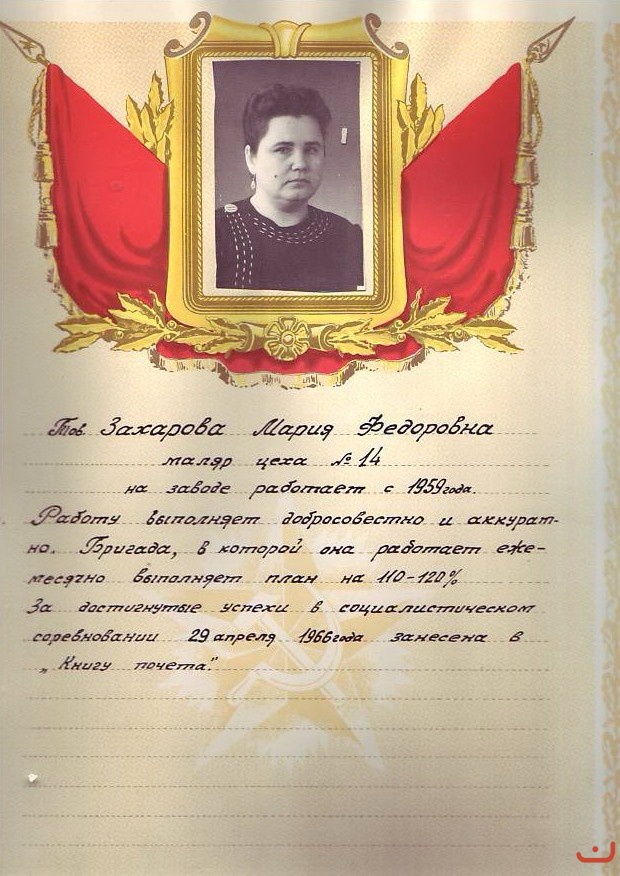 Тов. Захарова Мария Федоровна
маляр цеха № 14
на заводе работает с 1959 года.
Работу выполняет добросовестно и аккурат-
но. Бригада, в которой она работает еже-
месячно выполняет план на 110-120%
За достигнутые успехи в социалистическом
соревновании 29 апреля 1966 года занесена в
„Книгу почета."